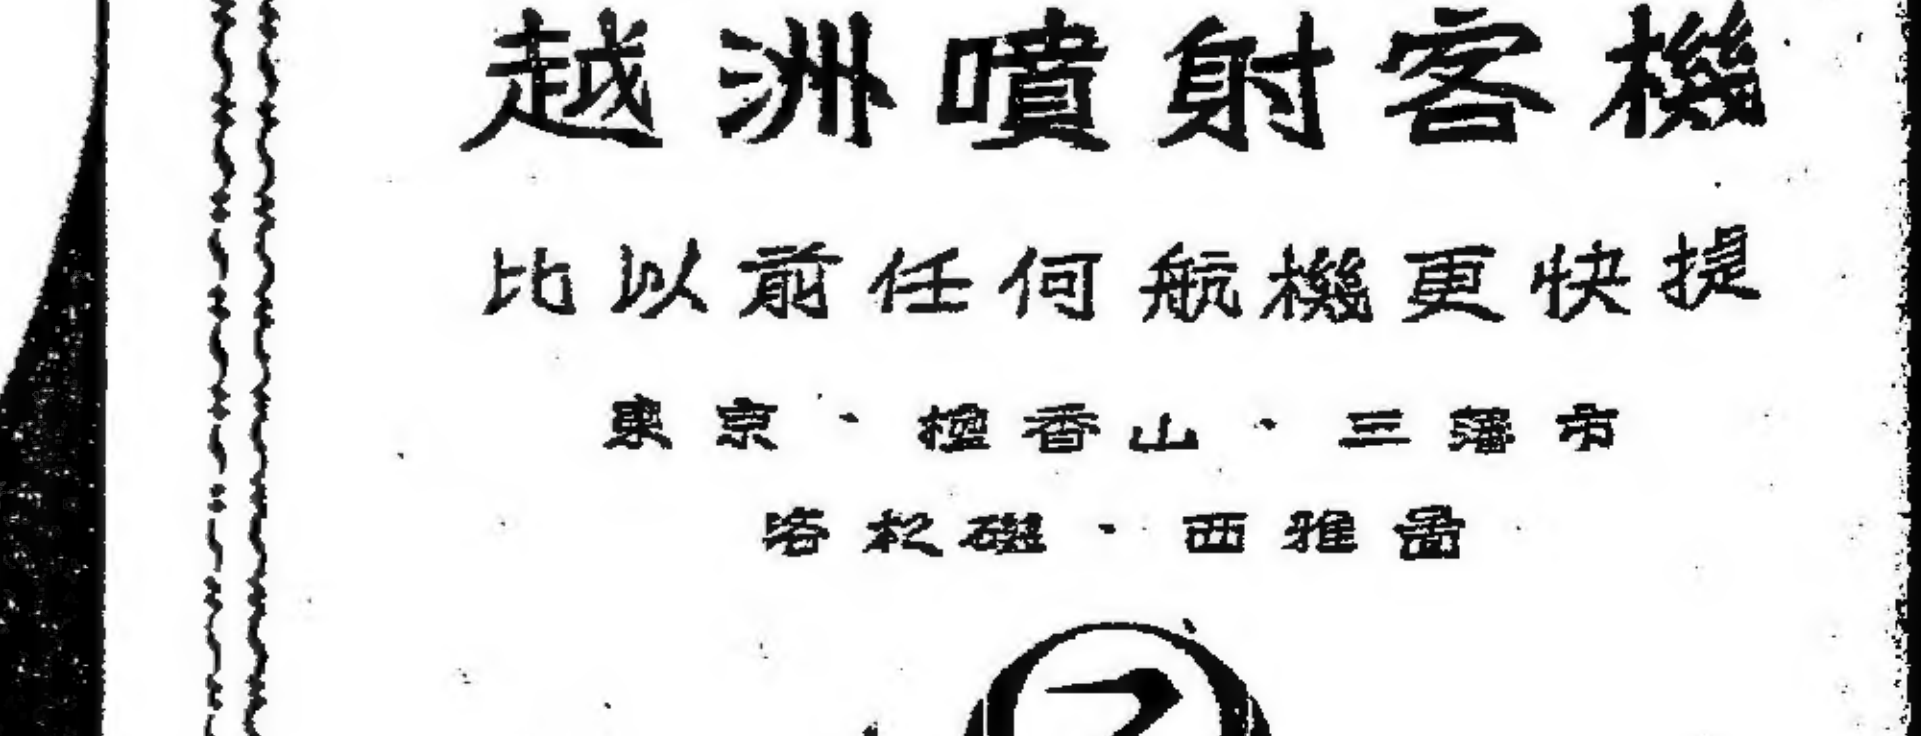 越洲噴射客機
比以前任何航機更快捷
東京、檀香山、三藩市
洛杉磯、西雅圖